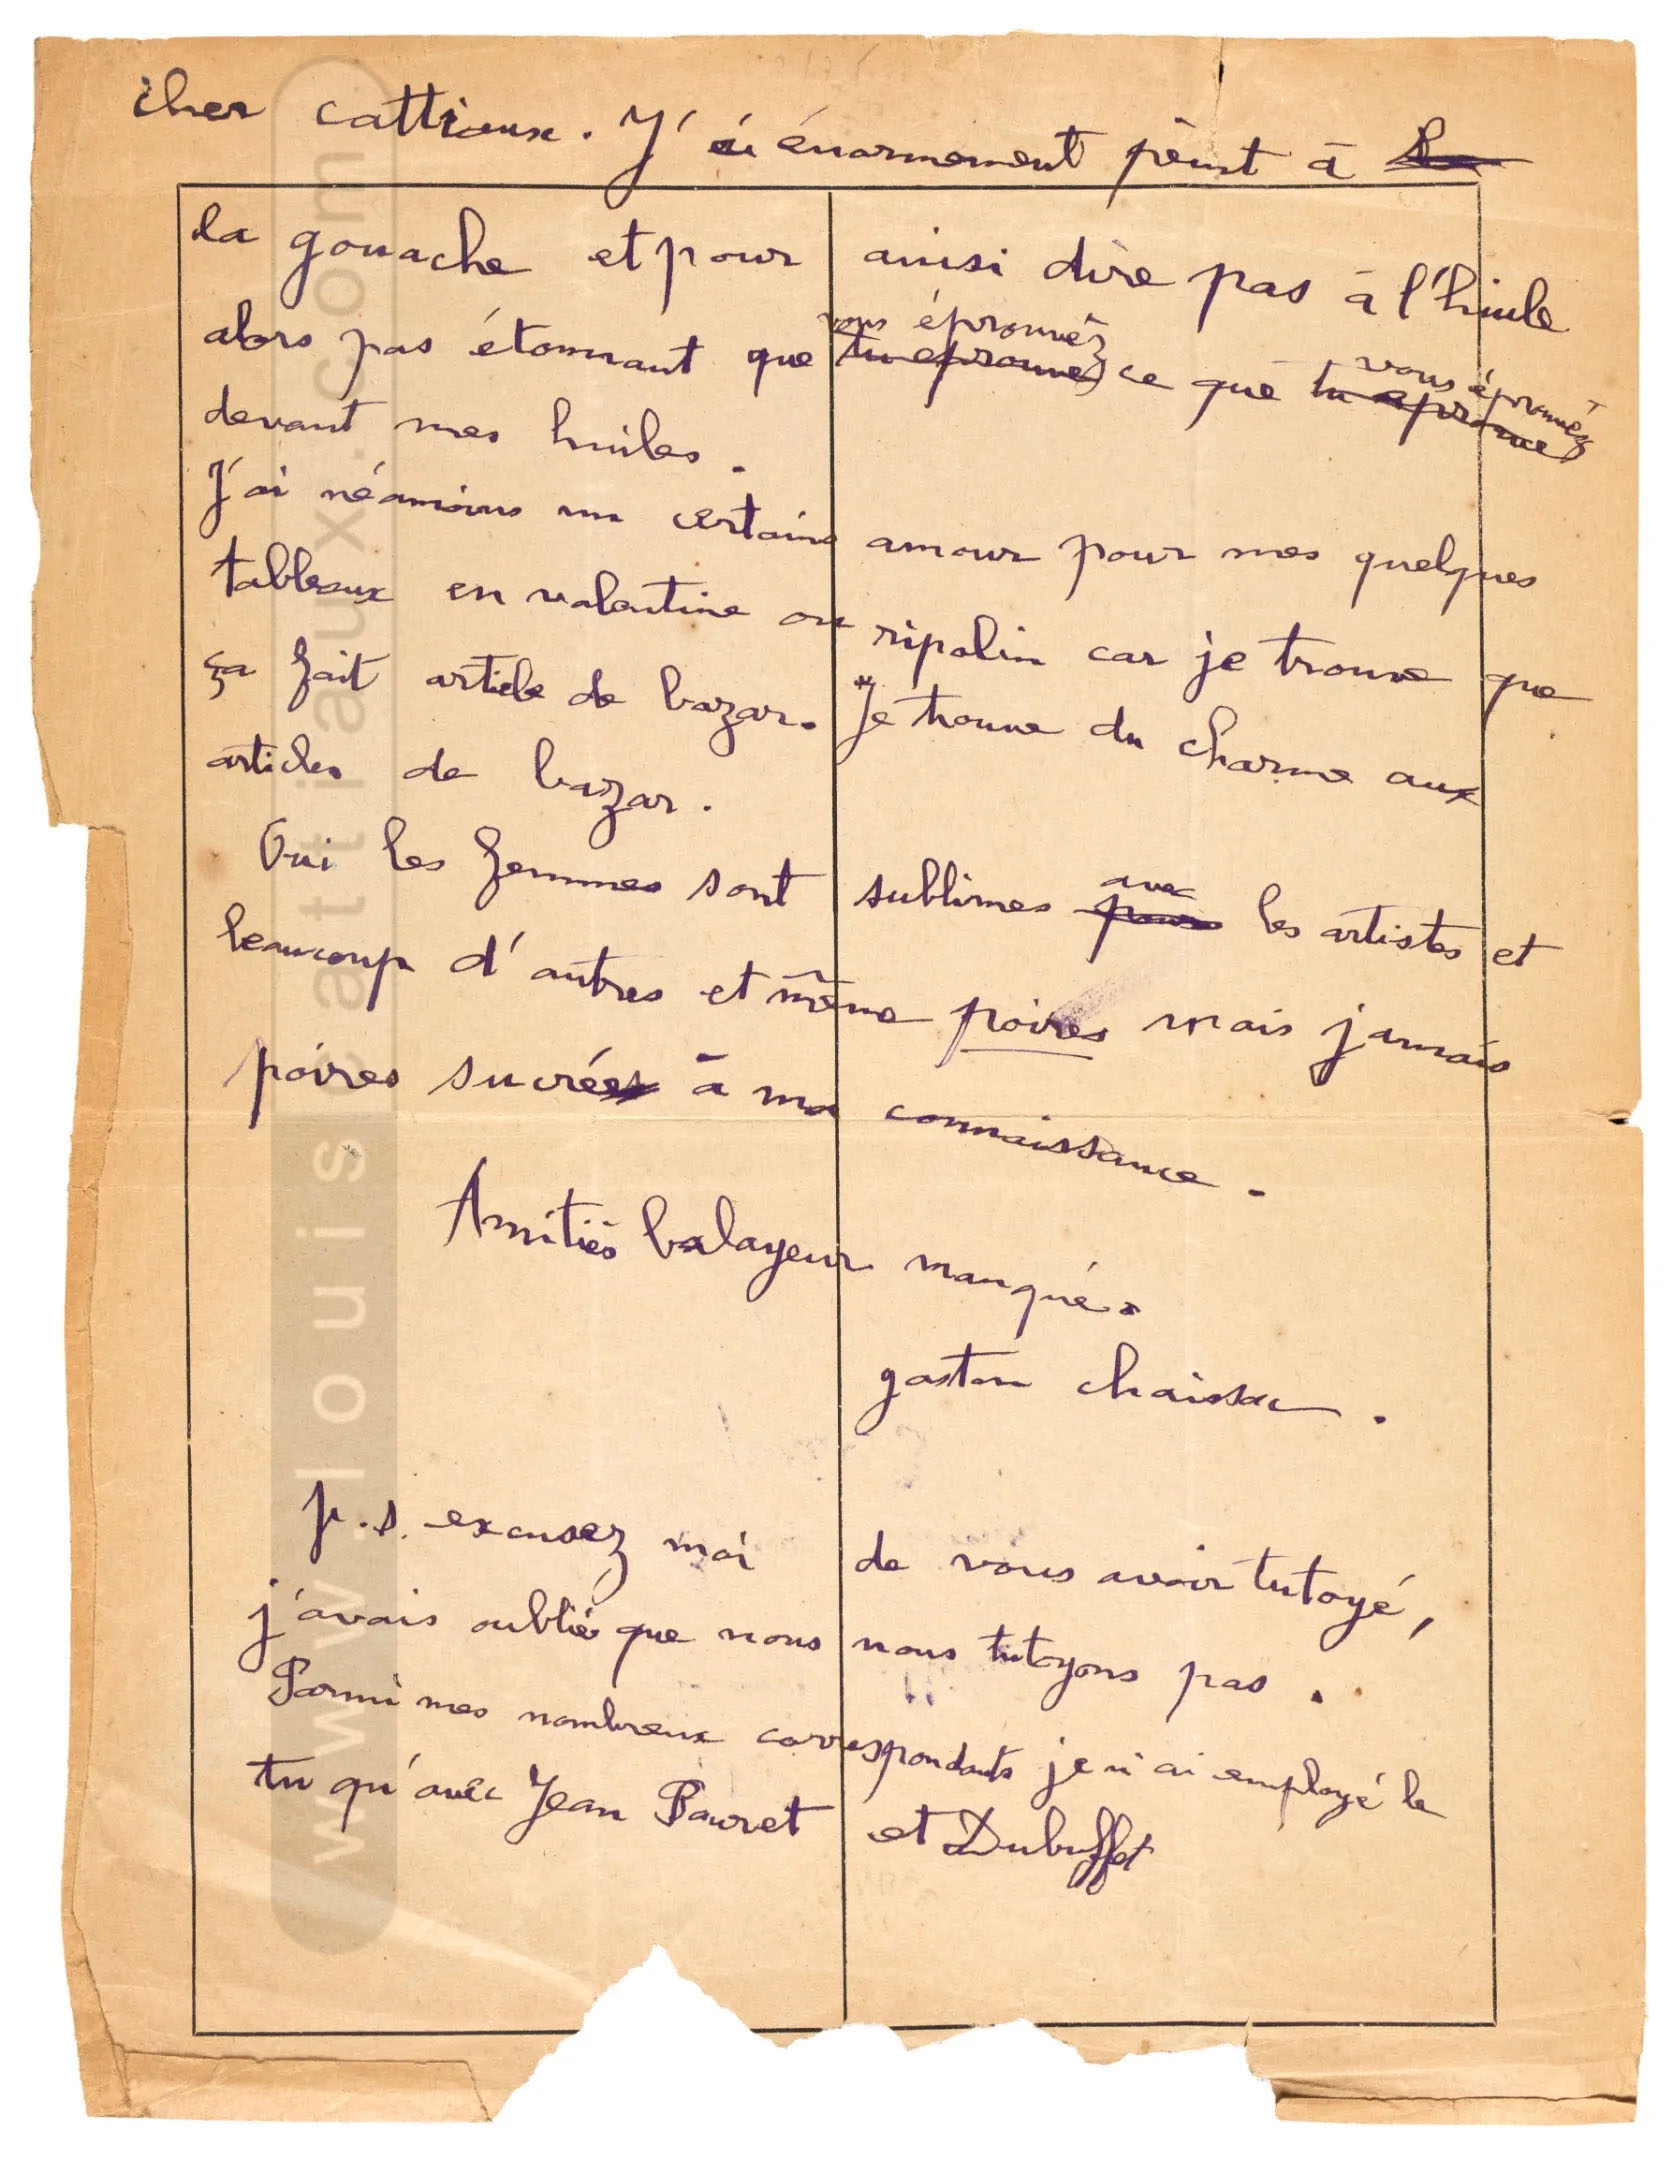 cher cattiaux. J'ai énormement peint à
la gouache et pour ainsi dire pas à l'huile
alors pas étonnant que tu eprouvez vous éprouvéz ce que tu eprouvez vous éprouvéz
devant mes huiles.
J'ai néamoins un certains amour pour mes quelques
tableaux en valentine ou ripolin car je trouve que
ça fait article de bazar. Je trouve du charme aux
articles de bazar.
Oui les femmes sont sublimes pour avec les artistes et
beaucoup d'autres et même poires mais jamais
poires sucrées à ma connaissance.
Amitiés balayeur manqué.
gaston chaissac.
p.s. excusez moi de vous avoir tutoyé,
j'avais oublié que nous nous tutoyons pas.
Parmi mes nombreux correspondants je n'ai employé le
tu qu'avec Jean Pauret et Dubuffet
www.louiscattiaux.com